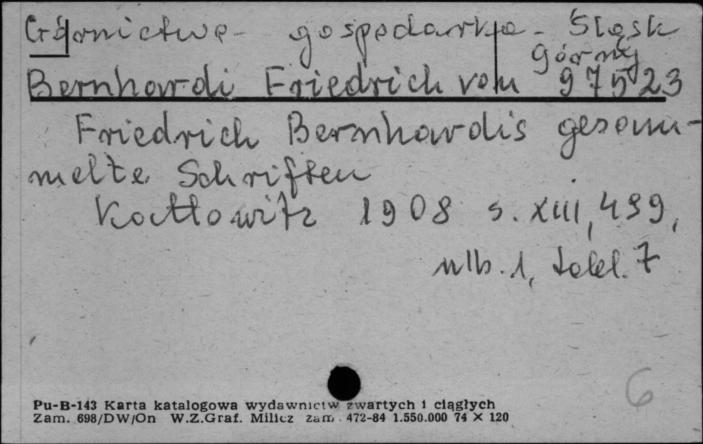 Górnictwo - gospodarka - Śląsk
Górny
Bernhardi Friedrich von 97523
Friedrich Bernhardis gesam-
melte Schriften
Kattowitz 1908 s. XIII, 499,
nlb. 1, tabl. 7
6
Pu-B-143 Karta katalogowa wydawnictw zwartych i ciągłych
Zam. 698/DW/On W.Z.Graf. Milicz zam. 472-84 1.550.000 74 × 120